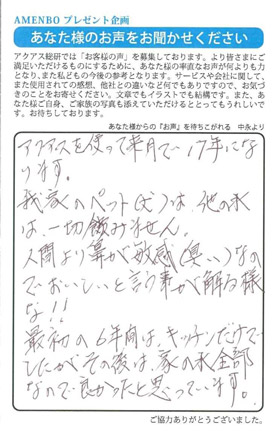 AMENBO プレゼント企画
あなた様のお声をお聞かせください
アクアス総研では「お客様の声」を募集しております。より皆さまにご
満足いただけるものにするために、あなた様の率直なお声が何よりも力
となり、また私どもの今後の参考となります。サービスや会社に関して、
また使用されての感想、他社との違いなど何でもありですので、お気づ
きのことをお寄せください。文章でもイラストでも結構です。また、あ
なた様ご自身、ご家族の写真も添えていただけるととってもうれしいで
す。お待ちしております。
あなた様からの『お声』を待ちこがれる 中永より
アクアスを使って来月で17年にな
ります。
我家のペット(犬)は、他の水
は、一切飲みません。
人間より鼻が敏感(臭い)なの
でおいしいと言う事が解る様
な!!
最初の6年間は、キッチンだけで
したがその後は、家の水全部
なので良かったと思っています。
ご協力ありがとうございました。